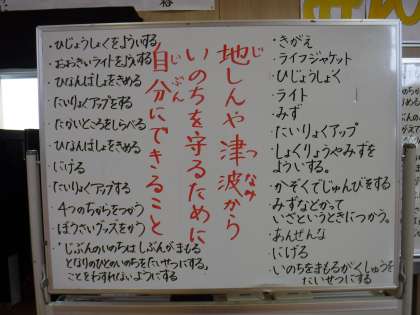 地しんや津波から
いのちを守るために
自分にできること
じ
つなみ
じぶん
・きがえ
・ライフジャケット
・ひじょうしょく
・ライト
・みず
・たいりょくアップ
・しょくりょうやみずを
よういする。
・かぞくでじゅんびをする
・みずなどかって
いざというときにつかう。
・あんぜんな
・にげる
・いのちをまもるがくしゅうを
たいせつにする
・ひじょうしょくをよういする
・おおきいライトをよういする
・ひなんばしょをきめる
・たいりょくアップをする
・たかいところをしらべる
・ひなんばしょをきめる
・にげる
・たいりょくアップする
・4つのちからをつかう
・ぼうさいグッズをかう
・じぶんのいのちはじぶんがまもる
となりのひとのいのちをたいせつにする。
ことをわすれないようにする